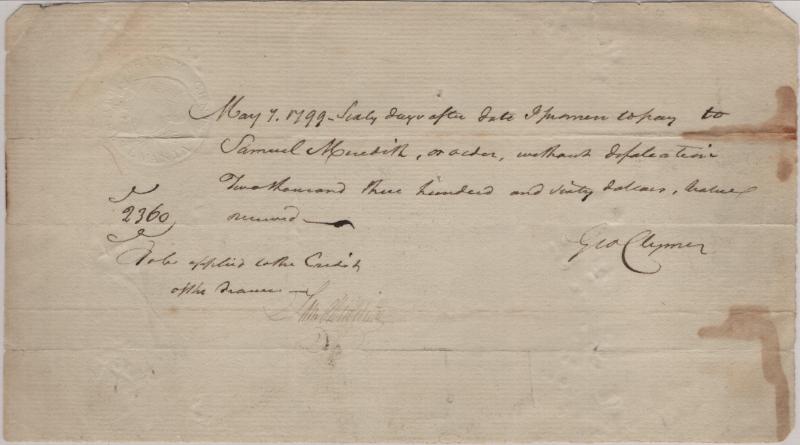 May 7. 1799 - Sixty days after date I promise to pay to
Samuel Meredith, or order, without defalcation
Two thousand three hundred and sixty dollars, Value
received
2360
Geo Clymer
To be applied to the Credit
of the Drawer